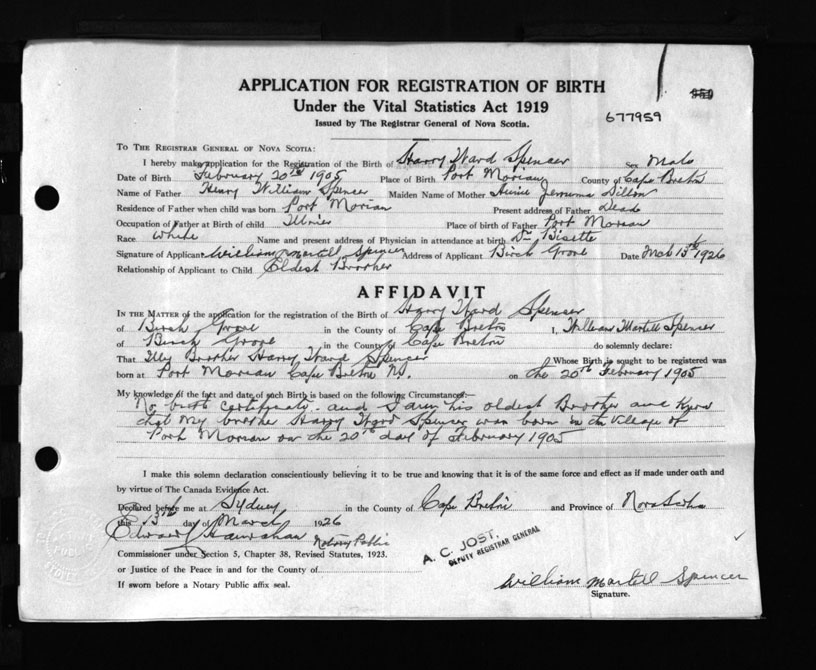 APPLICATION FOR REGISTRATION OF BIRTH
Under the Vital Statistics Act 1919
Issued by The Registrar General of Nova Scotia.
677959
TO THE REGISTRAR GENERAL OF NOVA SCOTIA:
I hereby make application for the Registration of the Birth of Harry Ward Spencer Sex Male
Date of Birth February 20th 1905 Place of Birth Port Morian County of Cape Breton
Name of Father Henry William Spencer Maiden Name of Mother Jemima Dillon
Residence of Father when child was born Port Morian Present address of Father Dead
Occupation of Father at Birth of child Minier Place of birth of Father Port Morian
Race White Name and present address of Physician in attendance at birth Dr Bisette
Signature of Applicant William Martell Spencer Address of Applicant Birch Grove Date Mch 13th 1926
Relationship of Applicant to Child Eldest Brother
AFFIDAVIT
IN THE MATTER of the application for the registration of the Birth of Harry Ward Spencer
of Birch Grove in the County of Cape Breton I, William Martell Spencer
of Birch Grove in the County of Cape Breton do solemnly declare:
That My Brother Harry Ward Spencer Whose Birth is sought to be registered was
born at Port Morian Cape Breton N.S. on the 20th February 1905
My knowledge of the fact and date of such Birth is based on the following Circumstances:—
No birth certificate. and I am his oldest Brother and know
that my brother Harry Ward Spencer was born in the Village of
Port Morian on the 20th day of February 1905
I make this solemn declaration conscientiously believing it to be true and knowing that it is of the same force and effect as if made under oath and
by virtue of The Canada Evidence Act.
Declared before me at Sydney in the County of Cape Breton and Province of Nova Scotia
this 13th day of March 1926
Notary Public
Commissioner under Section 5, Chapter 38, Revised Statutes, 1923.
or Justice of the Peace in and for the County of
If sworn before a Notary Public affix seal.
A. C. JOST,
DEPUTY REGISTRAR GENERAL
William Martell Spencer
Signature.